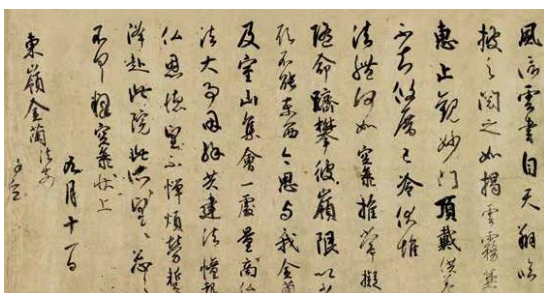 風信雲書自天翔臨
披之閲之如掲雲霧兼
恵止觀妙門頂戴供養
不知攸厝已冷伏惟
法體何如空海推常擬
随命躋攀彼嶺限以少
願不能東西今思与我金蘭
及室山集會一處量商仏
法大事因縁共建法幢報
仏恩徳望不憚煩勞蹔
降赴此院此所望〻忩〻
不具釋空海状上
九月十一日
東嶺金蘭法前
謹空